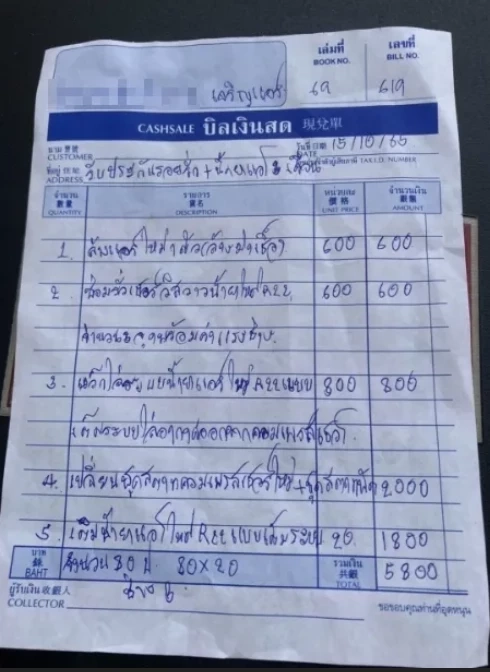 เจริญแอร์
เล่มที่ BOOK NO. 69
เลขที่ BILL NO. 619
CASHSALE บิลเงินสด 現兌單
นาม 寶號 CUSTOMER
วันที่ 日期 DATE 15/10/65
ที่อยู่ 住址 ADDRESS รับประกันรอยรั่ว + น้ำยาแอร์ เดือน
TAX I.D. NUMBER
จำนวน 數量 QUANTITY รายการ 貨名 DESCRIPTION หน่วยละ 價格 UNIT PRICE จำนวนเงิน 銀碼 AMOUNT
1. ล้างแอร์ใหม่ 1 ตัว (ล้างฆ่าเชื้อ) 600 600
2. ซ่อมรั่วเซอร์วิสวาวน้ำยาใหม่ R22 600 600
จำนวน จุดพร้อมค่าแรงช่าง
3. น้ำยาแอร์ใหม่ R22 แบบ 800 800
เต็มระบบไล่อากาศออกจากคอมเพรสเซอร์
4. เปลี่ยนชุดสตาทคอมเพรสเซอร์ใหม่ + ชุดสตาท 2000
5. เติมน้ำยาแอร์ใหม่ R22 แบบเต็มระบบ 20 1800
บาท 銖 BAHT จำนวน 80 ป. 80x20 รวมเงิน 共銀 TOTAL 5800
ผู้รับเงิน 收銀人 COLLECTOR ช่าง
ขอขอบคุณท่านที่อุดหนุน